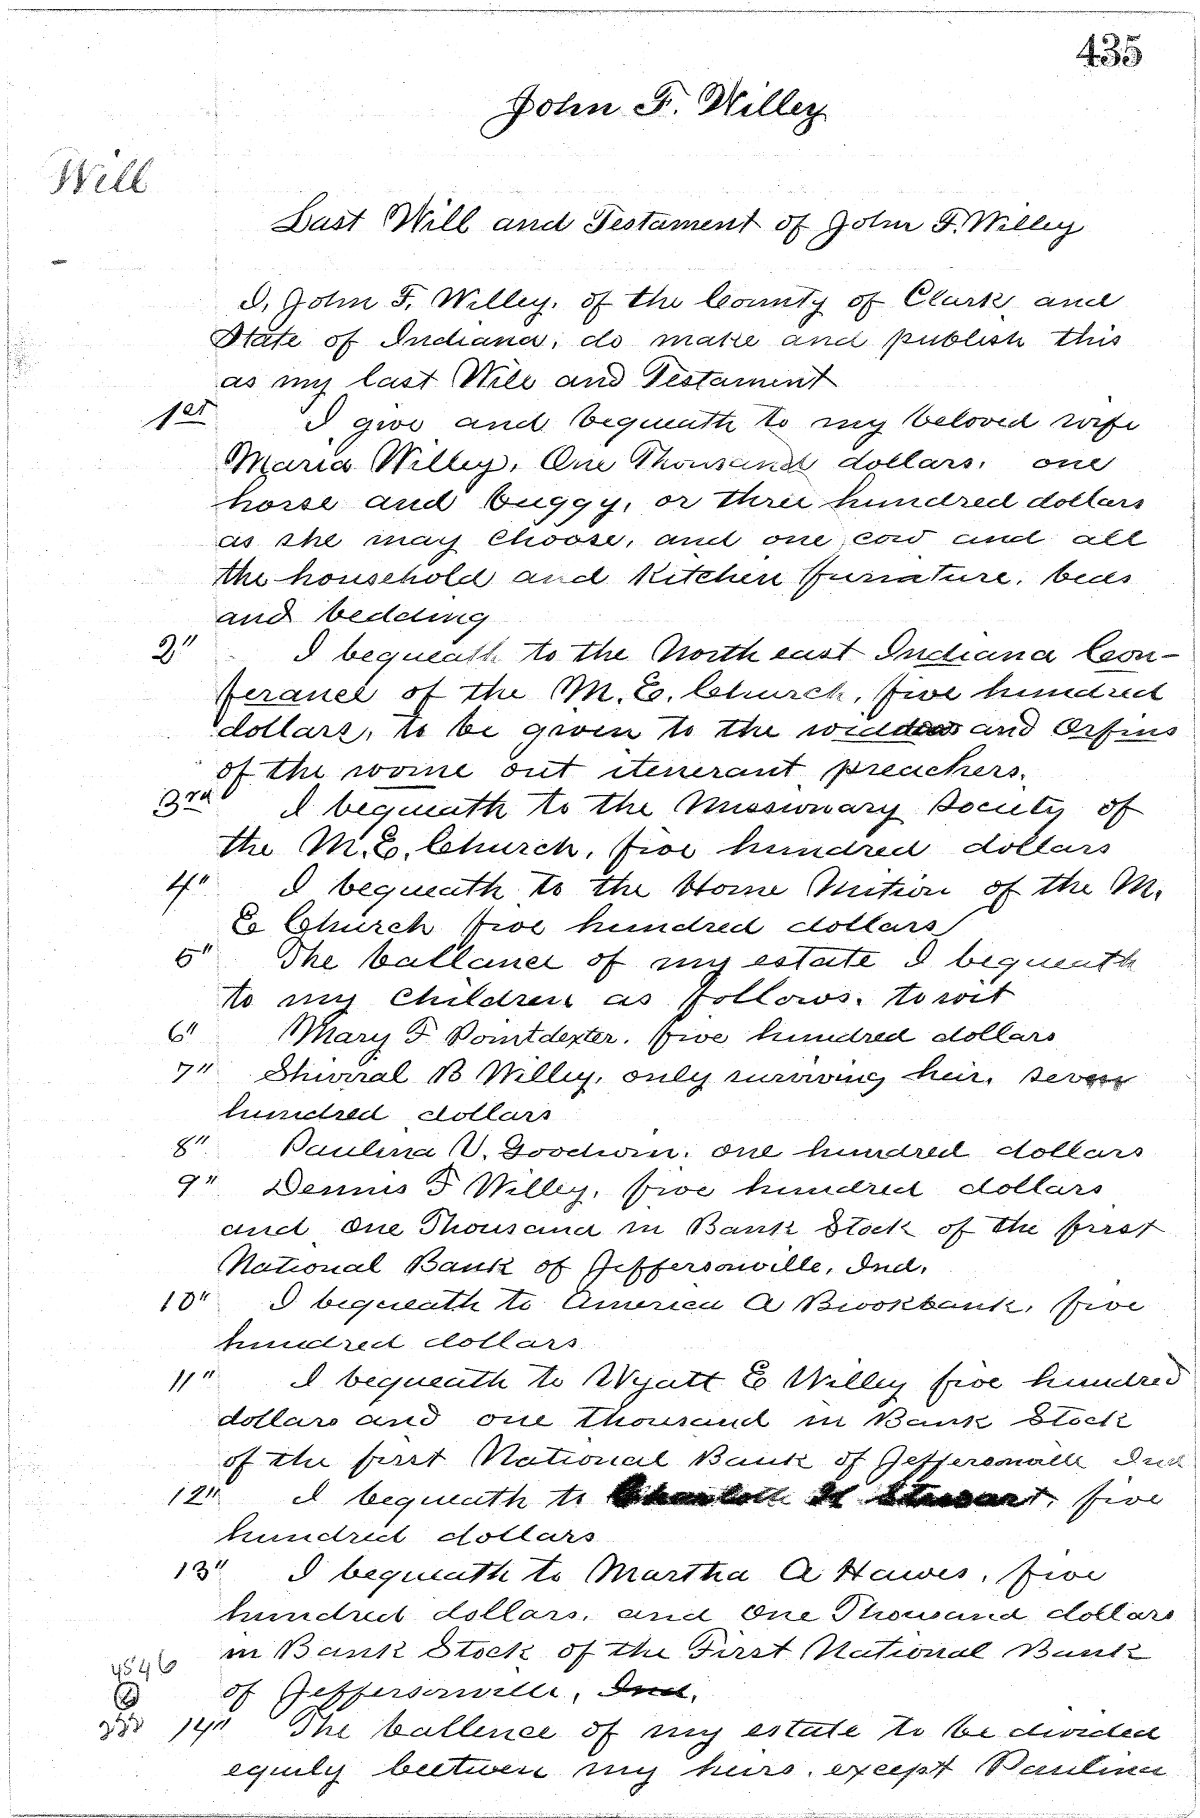 435
John F. Willey
Will
Last Will and Testament of John F. Willey
I, John F. Willey, of the County of Clark and
State of Indiana, do make and publish this
as my last Will and Testament
1st I give and bequeath to my beloved wife
Maria Willey, One Thousand dollars, one
horse and buggy, or three hundred dollars
as she may choose, and one cow and all
the household and Kitchen furnature, beds
and bedding
2" I bequeath to the North east Indiana Con-
ferance of the M. E. Church, five hundred
dollars, to be given to the widdows and Orfins
of the worne out itenerant preachers.
3rd I bequeath to the Missionary Society of
the M. E. Church, five hundred dollars
4" I bequeath to the Home Mition of the M.
E Church five hundred dollars
5" The ballance of my estate I bequeath
to my children as follows. to wit
6" Mary F Pointdexter, five hundred dollars
7" B Willey, only surviving heir, seven
hundred dollars
8" Paulina V. Goodwin, one hundred dollars
9" Dennis F Willey, five hundred dollars
and One Thousand in Bank Stock of the first
National Bank of Jeffersonville, Ind.
10" I bequeath to America A Brookbank, five
hundred dollars
11" I bequeath to Wyatt E Willey five hundred
dollars and one thousand in Bank Stock
of the first National Bank of Jeffersonville Ind
12" I bequeath to Charlotte H Stewart, five
hundred dollars
13" I bequeath to Martha A Hawes, five
hundred dollars, and One Thousand dollars
in Bank Stock of the First National Bank
of Jeffersonville, Ind.
4546
14" The ballence of my estate to be divided
equily beetwen my heirs, except Paulina